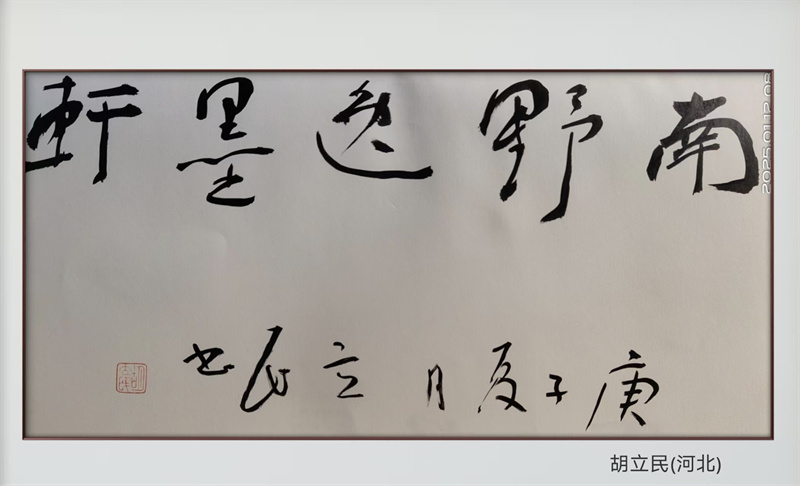 南野逸墨軒
庚子夏月立民书
2025.01.12
胡立民(河北)